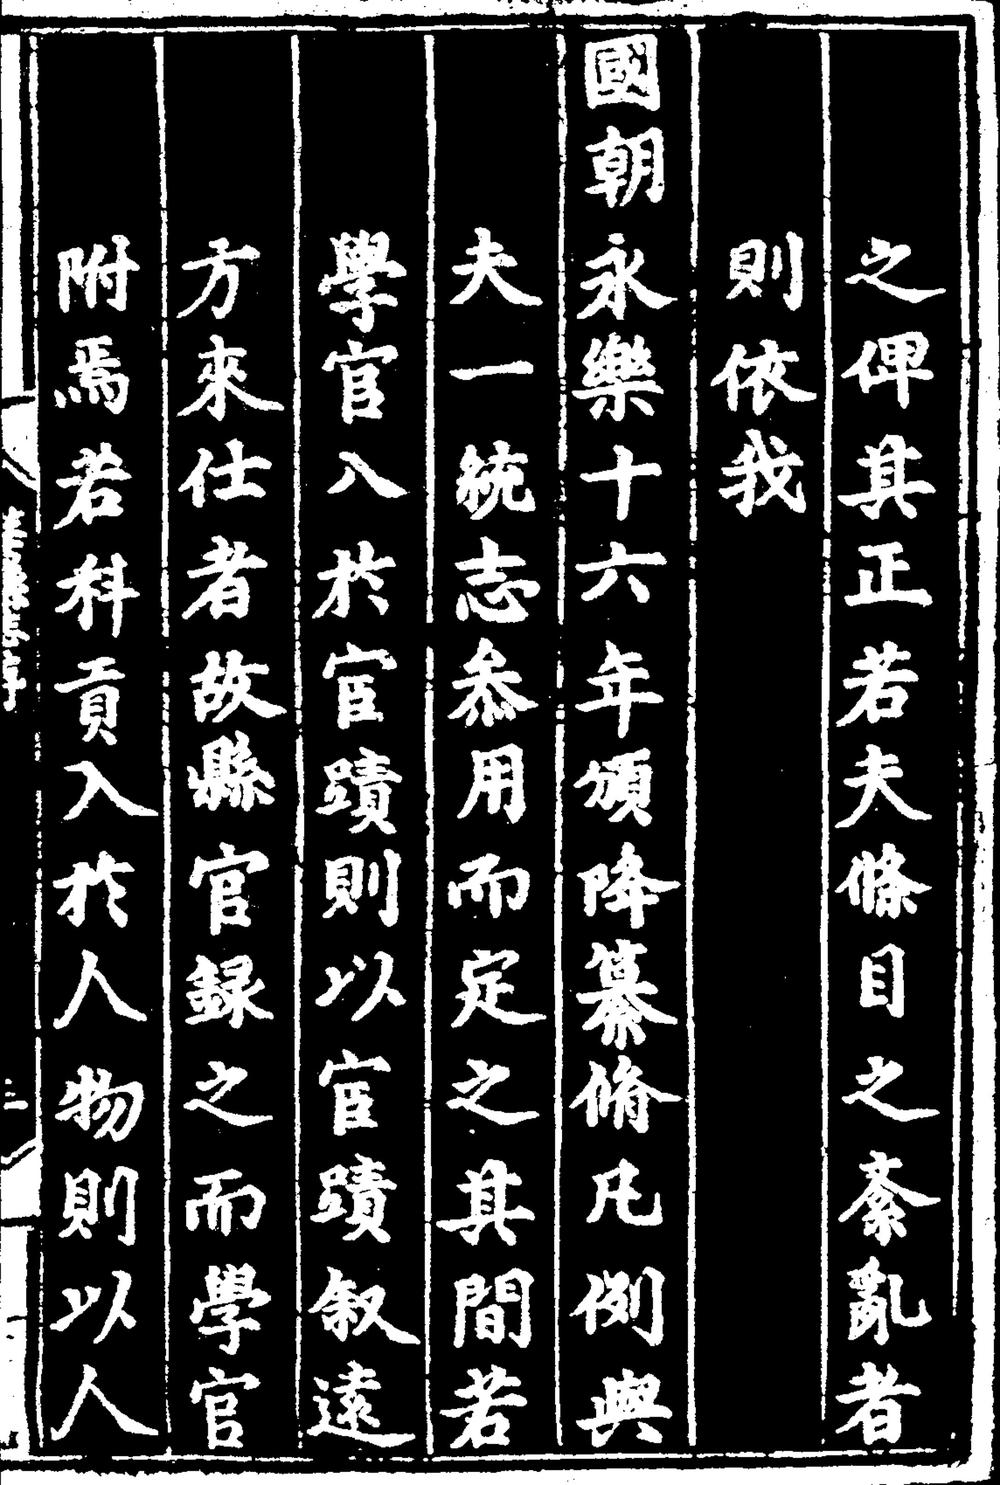 之俾其正若夫條目之紊亂者
則依我
國朝永樂十六年頒降纂脩凡例與
夫一統志叅用而定之其間若
學官入於宦蹟則以宦蹟叙遠
方來仕者故縣官録之而學官
附焉若科貢入於人物則以人